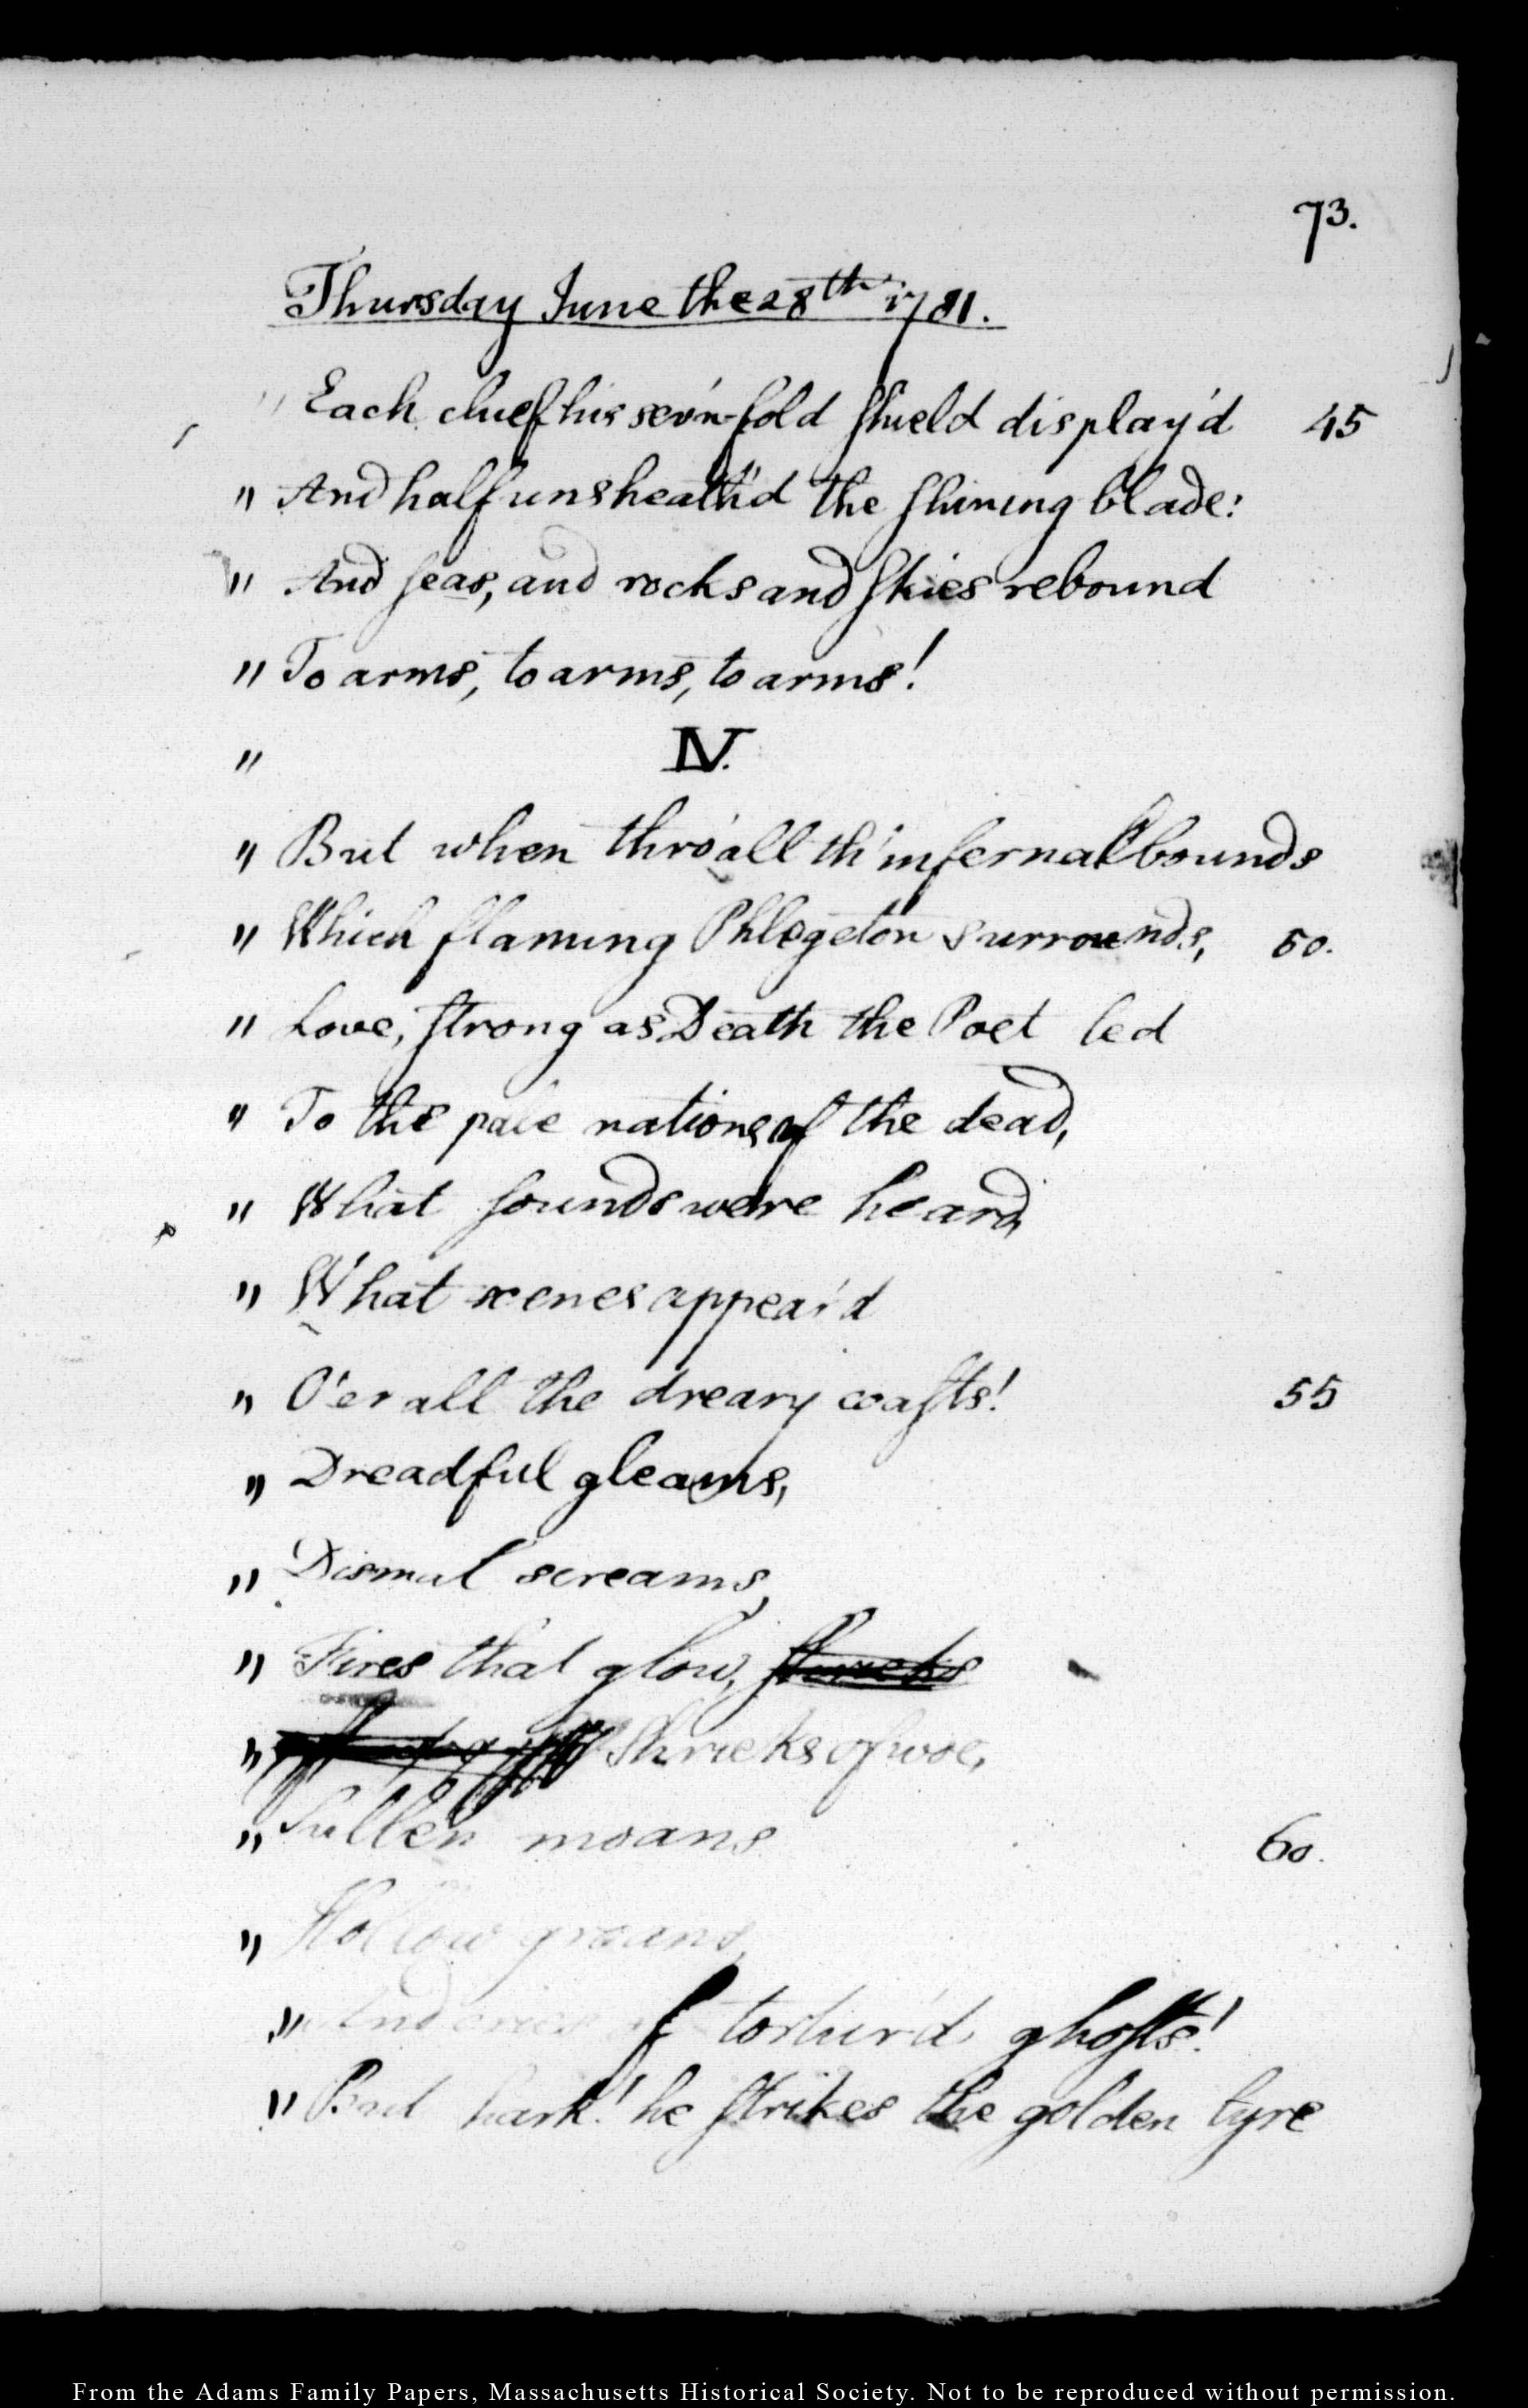 73.
Thursday June the 28th 1781.
" Each chief his sev'n-fold shield display'd 45
" And half unsheath'd the shining blade:
" And seas, and rocks and skies rebound
" To arms, to arms, to arms!
" IV.
" But when thro' all th' infernal bounds
" Which flaming Phlegeton surrounds, 50.
" Love, strong as Death the Poet led
" To the pale nations of the dead,
" What sounds were heard,
" What scenes appear'd
" O'er all the dreary coasts! 55
" Dreadful gleams,
" Dismal screams,
" Fires that glow, shrieks
" Shrieks of woe,
" Sullen moans 60.
" Hollow groans,
" And cries of tortur'd ghosts!
" But hark! he strikes the golden lyre
From the Adams Family Papers, Massachusetts Historical Society. Not to be reproduced without permission.